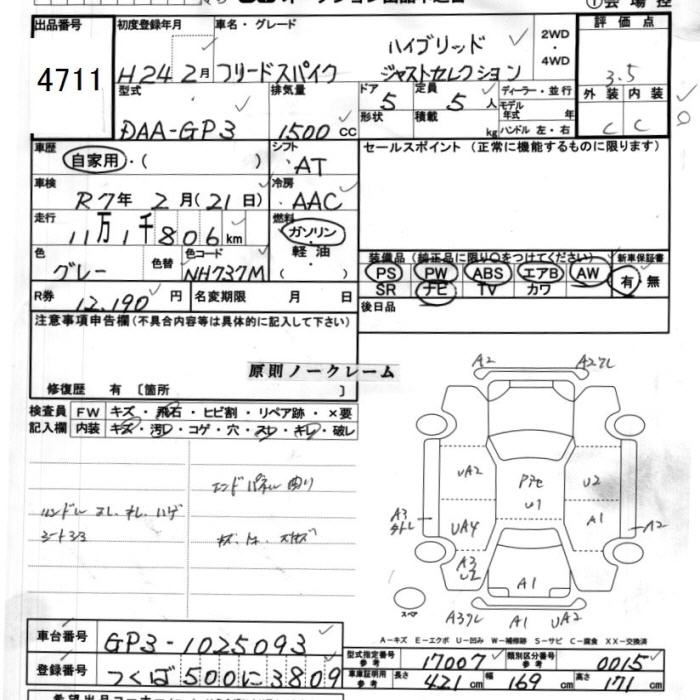 出品番号 4711
初度登録年月 H24 2月
車名・グレード フリードスパイク ハイブリッド ジャストセレクション
2WD・4WD
評価点 3.5
外装 C 内装 C
型式 DAA-GP3
排気量 1500 cc
ドア 5 定員 5人
形状 積載 kg
ディーラー・並行
モデル年式 年
ハンドル 左・右
車歴 自家用・( )
シフト AT
セールスポイント (正常に機能するものに限ります)
車検 R7年 2月(21日)
冷房 AAC
走行 11万1千806km
燃料 ガソリン・軽油・( )
色 グレー 色替 色コード NH737M
装備品 (純正品に限り○をつけてください) 新車保証書
PS PW ABS エアB AW 有・無
SR ナビ TV カワ
R券 12,190円
名変期限 月 日
後日品
注意事項申告欄 (不具合内容等は具体的に記入して下さい)
原則ノークレーム
修復歴 有 [箇所 ]
検査員 FW キズ・飛石・ヒビ割・リペア跡・×要
記入欄 内装 キズ・汚れ・コゲ・穴・スレ・キレ・破レ
ハンドル スレ、オレ、ハゲ
エンドパネル曲り
A2
A2
UA2
U1
U2
A3
UA4
A1
A2
A3
U2
A1
スペア
A1
UA2
A-キズ E-エクボ U-凹み W-補修跡 S-サビ C-腐食 XX-交換済
車台番号 GP3-1025093
登録番号 つくば500に3809
型式指定番号 参考 17007 類別区分番号 参考 0015
車庫証明用 参考 長さ 421cm 幅 169cm 高さ 171cm